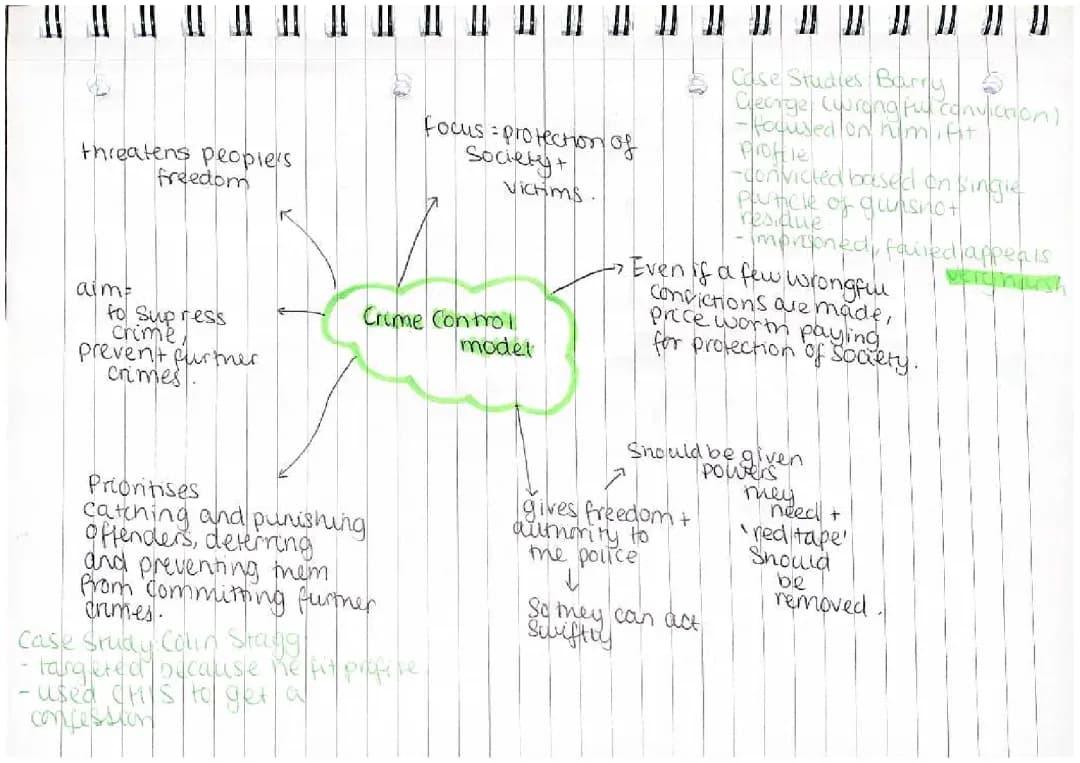 Case Studies: Barry
George (wrongful conviction)
- focused on him, fit
profile
- convicted based on single
particle of gunshot
residue
- imprisoned, failed appeals
very harsh
focus = protection of
society +
victims.
threatens people's
freedom
Even if a few wrongful
convictions are made,
price worth paying
for protection of society.
aim=
to supress
crime,
prevent further
crimes.
Crime Control
model
Prioritises
catching and punishing
offenders, deterring
and preventing them
from committing further
crimes.
Should be given
powers
they
need +
'red tape'
should
be
removed.
gives freedom +
authority to
the police
So they can act
swiftly
Case Study: Colin Stagg
- targeted because he fit profile
- used CHIS to get a
confession